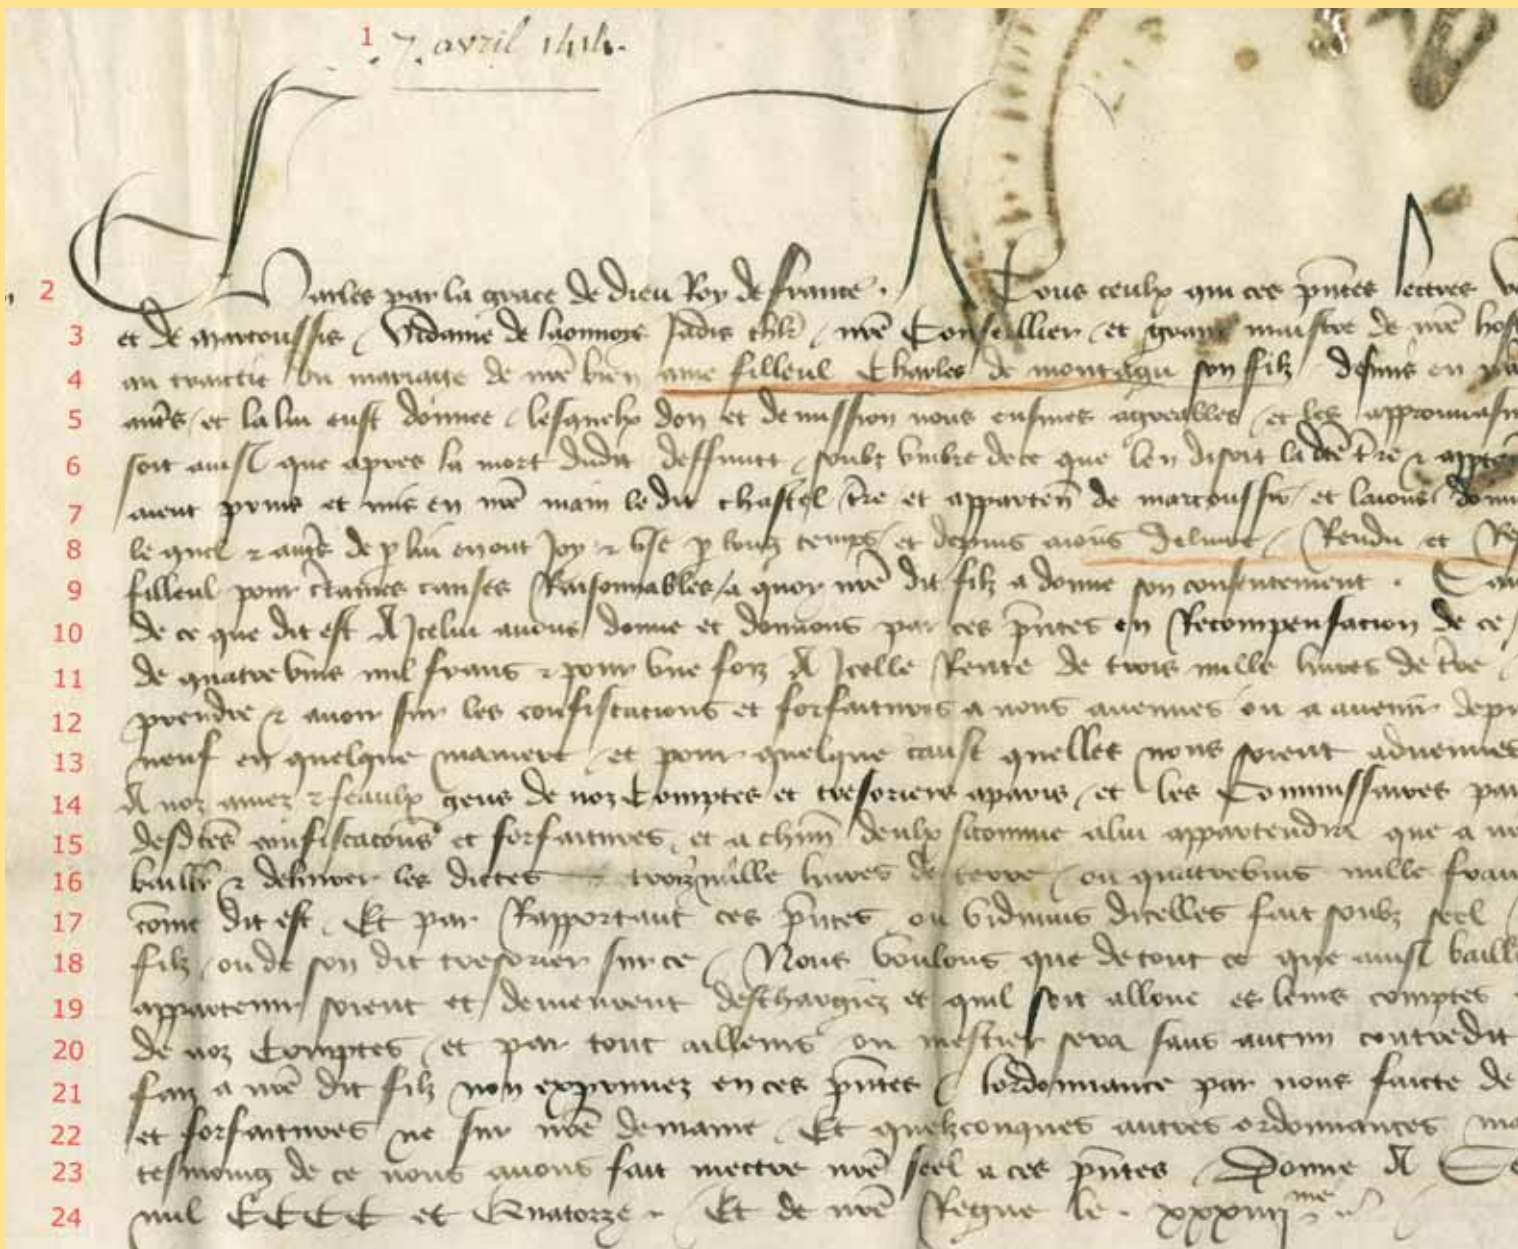 1 7. avril 1414.
2 Charles par la grace de dieu Roy de france . A Tous ceulx qui ces p̃ntes lettres
3 et de marcoussis / vidame de laonnois Jadis chl̃r / nr̃e Conseillier / et grant maistre de nr̃e host
4 au traictie du mariage de nr̃e bien ame filleul Charles de montagu son filz
5 et la lui eust donnee / lesquelx don et demission nous eusmes agreables / et les approuvasm
6 soit ainsi que apres la mort dudit deffunct / soubz umbre de ce que len disoit la dc̃e t̃re ⁊
7 aient prins et mis en nr̃e main le dit chastel / t̃re et apparteñ de marcoussis / et laions
8 le quel ⁊ autr̃s de p lui en ont Joy ⁊ use p long temps / et depuis aions delivre / Rendu et Re
9 filleul pour c̃taines causes Raisonnables / a quoy nr̃e dit filz a donne son consentement .
10 de ce que dit est A Icelui avons donne et donnons par ces p̃ntes en Recompensacion de ce /
11 de quatrevins mil frans ⁊ pour une foiz A Icelle Rente de trois mille livres de t̃re /
12 prendre ⁊ avoir sur les confiscacions et forfaitures a nous avenues ou a avenir depu
13 neuf en quelque maniere / et pour quelque cause quelles nous soient advenues
14 A noz amez ⁊ feaulx gens de noz Comptes et tresoriers a paris / et les Commissaires par
15 desdc̃es confiscacoñs et forfaitures / et a chũn deulx sicomme a lui appartendra que a nr
16 baillr̃ ⁊ delivrer les dictes trois mille livres de terre / ou quatrevins mille fran
17 com̃e dit est . Et par Rapportant ces p̃ntes ou vidimus dicelles fait soubz seel
18 filz / ou de son dit tresorier sur ce / Nous voulons que de tout ce que ainsi baill
19 appartenir soient et demeurent deschargiez et quil soit alloue es leurs comptes
20 de noz Comptes / et par tout ailleurs ou mestier sera sans aucun contredit
21 faiz a nr̃e dit filz non exprimez en ces p̃ntes / lordonnance par nous faicte de
22 et forfaitures ne sur nr̃e demaine / Et quelzconques autres ordonnances
23 tesmoing de ce nous avons fait mectre nr̃e seel a ces p̃ntes / Donne A
24 mil CCCC et Quatorze . Et de nr̃e Regne le . xxxiiij me